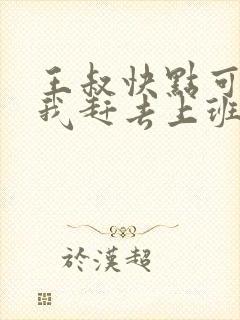 王叔快點可
我赶去上班
於漢超